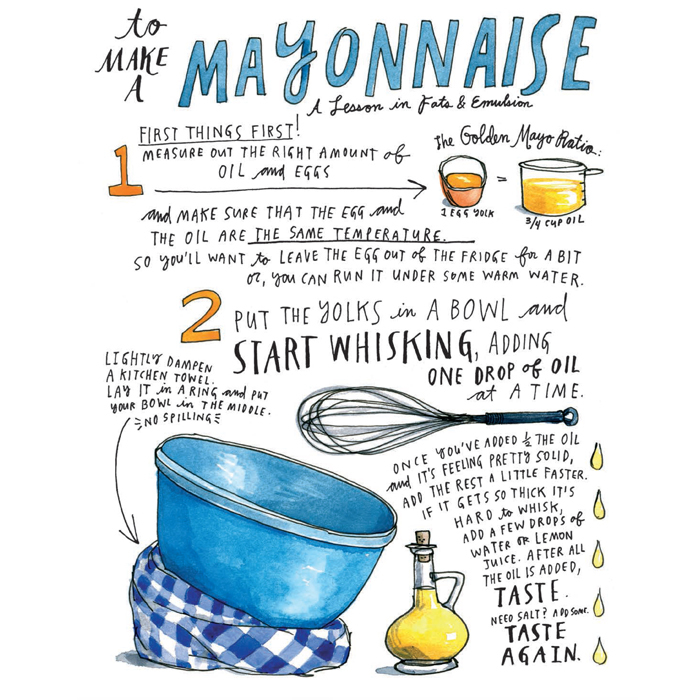 to
MAKE
A
MAYONNAISE
A Lesson in Fats & Emulsion
FIRST THINGS FIRST!
1
MEASURE OUT THE RIGHT AMOUNT of
OIL and EGGS
the Golden Mayo Ratio:
=
1 EGG YOLK
3/4 CUP OIL
and MAKE SURE THAT THE EGG and
THE OIL ARE THE SAME TEMPERATURE.
SO YOU'LL WANT to LEAVE THE EGG OUT OF THE FRIDGE for A BIT
or, YOU CAN RUN IT UNDER SOME WARM WATER.
2
PUT THE YOLKS in A BOWL and
START WHISKING, ADDING
ONE DROP of OIL
at A TIME.
LIGHTLY DAMPEN
A KITCHEN TOWEL.
LAY IT in A RING and PUT
YOUR BOWL in THE MIDDLE.
NO SPILLING
ONCE YOU'VE ADDED ½ THE OIL
and IT'S FEELING PRETTY SOLID,
ADD THE REST A LITTLE FASTER.
IF IT GETS SO THICK IT'S
HARD to WHISK,
ADD A FEW DROPS of
WATER OR LEMON
JUICE. AFTER ALL
THE OIL IS ADDED,
TASTE.
NEED SALT? ADD SOME.
TASTE
AGAIN.